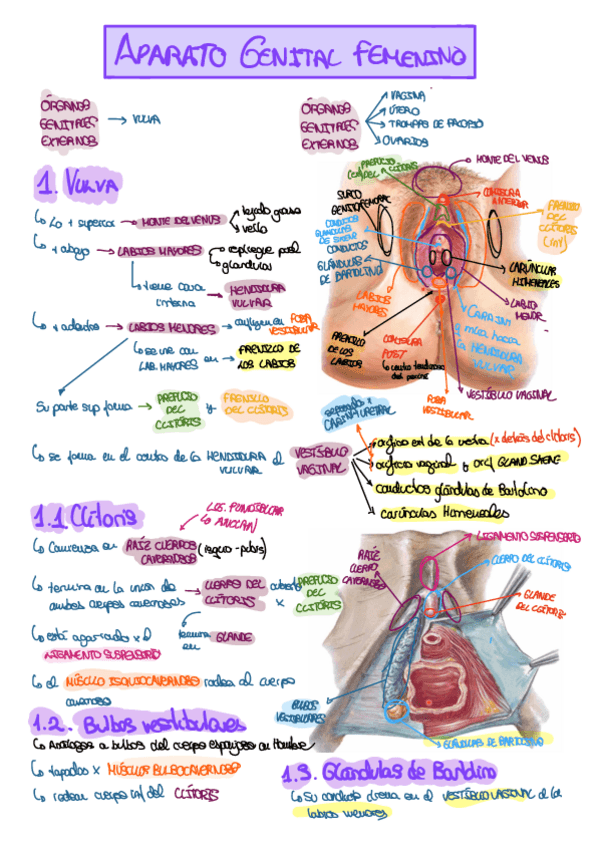 APARATO GENITAL FEMENINO
ÓRGANOS
GENITALES
EXTERNOS
→ VULVA
ÓRGANOS
GENITALES
EXTERNOS
VAGINA
ÚTERO
TROMPAS DE FALOPIO
OVARIOS
1. VULVA
↳ Lo + superior → MONTE DEL VENUS
tejido graso
vello
↳ + abajo → LABIOS MAYORES
repliegue piel
glándulas
tiene cara interna
HENDIDURA
VULVAR
↳ + adentro → LABIOS MENORES → confluyen en FOSA
VESTIBULAR
se une con
LAB. MAYORES en → FRENILLO DE
LOS LABIOS
Su parte sup forma → PREPUCIO
DEL
CLÍTORIS
y FRENILLO
DEL CLÍTORIS
↳ se forma en el centro de la HENDIDURA el
VULVAR
VESTÍBULO
VAGINAL
rodeado x
CARINA URETRAL
orificio ext de la uretra (x detrás del clítoris)
orificio vaginal y orif GLAND SKENE
conductos glándulas de Bartolino
carúnculas Himeneales
PREPUCIO
MONTE DEL VENUS
SURCO
GENITOFEMORAL
COMISURA
ANTERIOR
FRENILLO
DEL
CLÍTORIS
CONDUCTOS
GLÁNDULAS
DE SKENE
CONDUCTOS
GLÁNDULAS
DE BARTOLINO
CARÚNCULAS
HIMENEALES
LABIOS
MAYORES
LABIO
MENOR
CARA INT
q mira hacia
la HENDIDURA
VULVAR
FRENILLO
DE LOS
LABIOS
COMISURA
POST
↳ centro tendinoso
del periné
VESTÍBULO VAGINAL
FOSA
VESTIBULAR
1.1. Clítoris
LIG. PUNDIBULAR
LO ANCLAN
↳ Comienza en RAÍZ CUERPOS
CAVERNOSOS
(isquio-pubis)
↳ termina en la unión de
ambos cuerpos cavernosos
→ CUERPO DEL
CLÍTORIS
cubierto
x
PREPUCIO
DEL
CLÍTORIS
termina
en
GLANDE
↳ está agarrado x el
LIGAMENTO SUSPENSORIO
↳ el MÚSCULO ISQUIOCAVERNOSO rodea al cuerpo
cavernoso
LIGAMENTO SUSPENSORIO
RAÍZ
CUERPO
CAVERNOSO
CUERPO DEL CLÍTORIS
GLANDE
DEL CLÍTORIS
BULBOS
VESTIBULARES
GLÁNDULAS DE BARTOLINO
1.2. Bulbos vestibulares
↳ Análogos a bulbos del cuerpo esponjoso en Hombre
↳ tapados x MÚSCULO BULBOCAVERNOSO
↳ rodean cuerpo inf del CLÍTORIS
1.3. Glándulas de Bartolino
↳ Su conducto drena en el VESTÍBULO VAGINAL e/ los
labios menores